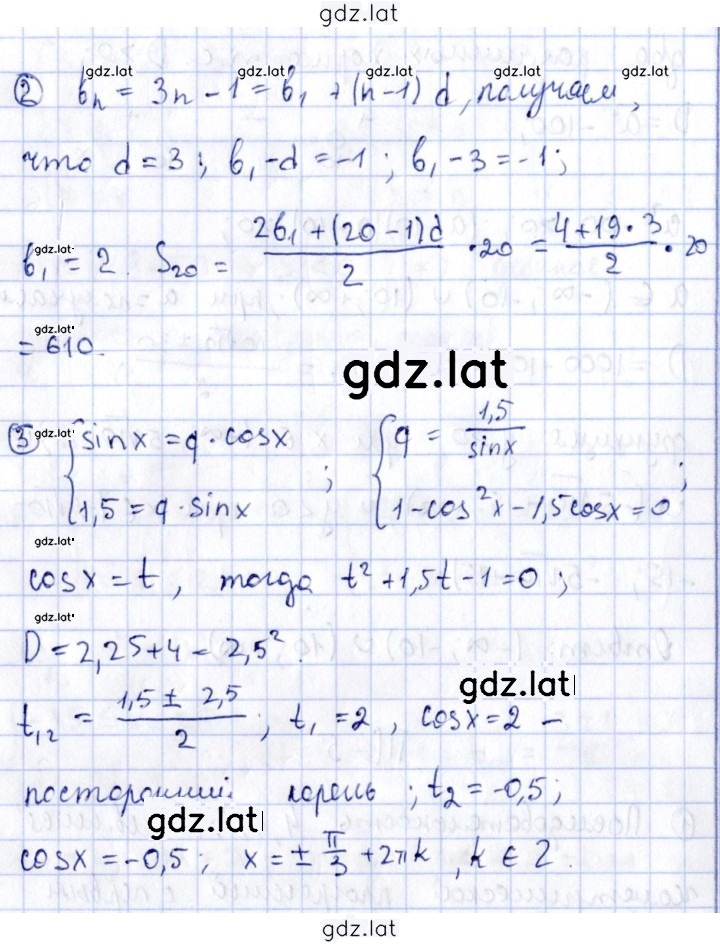 gdz.lat
gdz.lat gdz.lat gdz.lat gdz.lat gdz.lat
② bₙ = 3n - 1 = b₁ + (n-1) d, получаем,
что d = 3; b₁ - d = -1; b₁ - 3 = -1;
gdz.lat
b₁ = 2. S₂₀ = (2b₁ + (20 - 1)d)/2 · 20 = (4 + 19 · 3)/2 · 20
gdz.lat
= 610.
gdz.lat
③ gdz.lat { sinx = q · cosx ; { q = 1,5/sinx
{ 1,5 = q · sinx { 1 - cos²x - 1,5cosx = 0 ;
gdz.lat
cosx = t, тогда t² + 1,5t - 1 = 0;
gdz.lat
D = 2,25 + 4 = 2,5².
gdz.lat
t₁,₂ = (1,5 ± 2,5)/2 ; t₁ = 2, cosx = 2 –
посторонний корень; t₂ = -0,5;
gdz.lat
cosx = -0,5; x = ± π/3 + 2πk, k ∈ Z.
gdz.lat